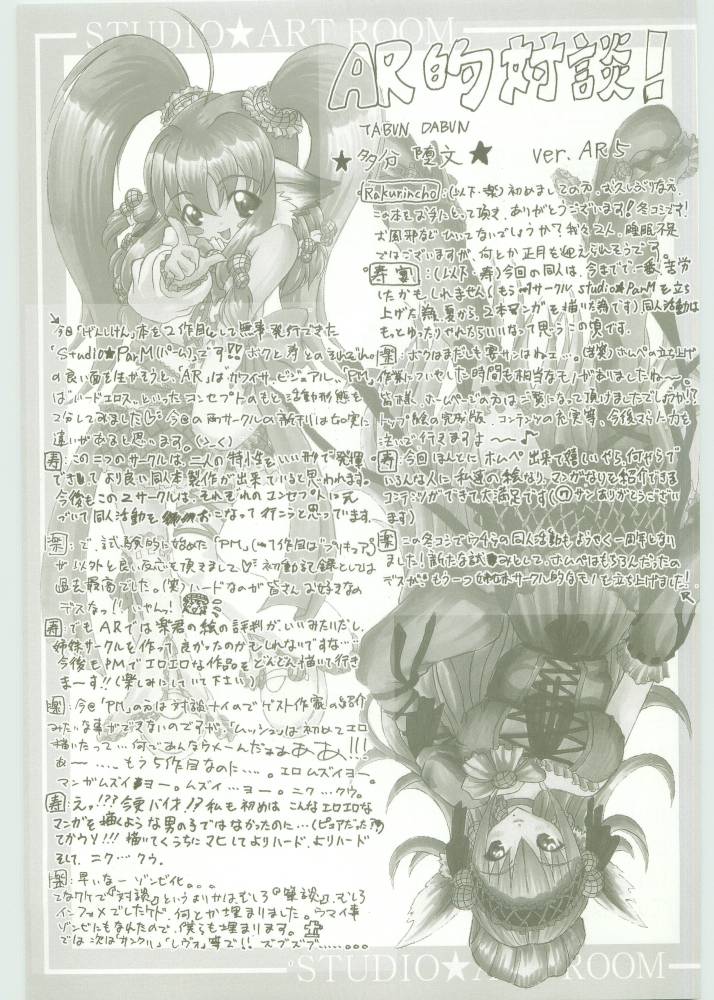 STUDIO★ART ROOM
AR的対談!
TABUN DABUN
★多分 堕文★ ver. AR5
Rakurincho:(以下・楽)初めましての方、お久しぶりな方、
この本をお手にとって頂き、ありがとうございます!冬コミです!
お風邪などひいてないでしょうか?我々2人、睡眠不足
ではございますが、何とか正月も迎えられそうです。
寿宴:(以下・寿)今回の同人は、今までで一番苦労
したかもしれません(もう1つサークルstudio★ParMを立ち
上げた為、夏から、2本マンガも描いた為です)同人活動は
もっとゆったりやれたらいいなって思うこの頃です。
楽:ボクはまだしも寿サンはねェ…。(苦笑)ホムペの立ち上げ
作業についやした時間も相当なモノがありましたねー。
皆様、ホームページの方はご覧になって頂けましたでしょうか!?
トップ絵の完成版、コンテンツの充実等、今後もより力を
注いで行きますよ〜〜♪
寿:今回ほんとにホムペ出来て嬉しいやら、何やらで
いろんな人に私達の絵なり、マンガなりを紹介できる
コンテンツができて大満足です(@サンありがとうござい
ます)
楽:この冬コミでウチらの同人活動もようやく一周年となり
ました!新たな試みとして、ホムペはもちろんだったの
デスが、もう一つ姉妹サークル的なモノを立ち上げました!
↖
↘
今回「げんしけん」本を2作目として無事発行できた
「Studio★ParM(パーム)」です!!ボクと寿とのそれぞれ
の良い面を生かそうと、「AR」は"カワイサ、ビジュアル"、「PM」
は"ハードエロス"、といったコンセプトのもと活動形態を
2分してみました♡今回の両サークルの新刊は如実に
違いがあると思います。
寿:この二つのサークルは、二人の特性をいい形で発揮
できて、より良い同人本製作が出来ていると思われます。
今後もこの2サークルは、それぞれのコンセプトに元
づいて同人活動もおこなって行こうと思っています
楽:で、試験的に始めた「PM」(1作目は"プリキュア")
が以外と良い反応も頂きまして♡初動記録としては
過去最高でした。(笑)ハードなのが皆さんお好きなの
デスなっ!!いやんっ!
寿:でもARでは楽君の絵の評判がいいみたいだし、
姉妹サークルを作って良かったのかもしれないですな…
今後もPMでエロエロな作品をどんどん描いて行き
まーす!!(楽しみにしていて下さい)
楽:今回「PM」の方は対談ナイのでゲスト作家の紹介
みたいな事ができないのですが、「ムッシュ」は初めてエロ
描いたって…何であんなうめーんだよぉああ!!!
あー……もう5作目なのに…。エロムズイヨー
マンガムズイヨー。ムズイ…ヨー。ニク…クウ。
寿:えっ!??今更バイオ!?私も初めはこんなエロエロな
マンガを描くような男の子ではなかったのに…(ピュアだった!?)
てかウソ!!!描いてくうちにマヒしてよりハード、よりハード
そして、ニク…クウ。
楽:早いなーゾンビ化。。。
てなワケで『対談』というよりかはむしろ『筆談』、むしろ
インフォメでしたケド、何とか埋まりました。ウマイ事
ゾンビにもなんたので、僕らも埋まります。
では次は「サンクリ」、「レヴォ」等で!!ズブズブ……。。。
STUDIO★ART ROOM